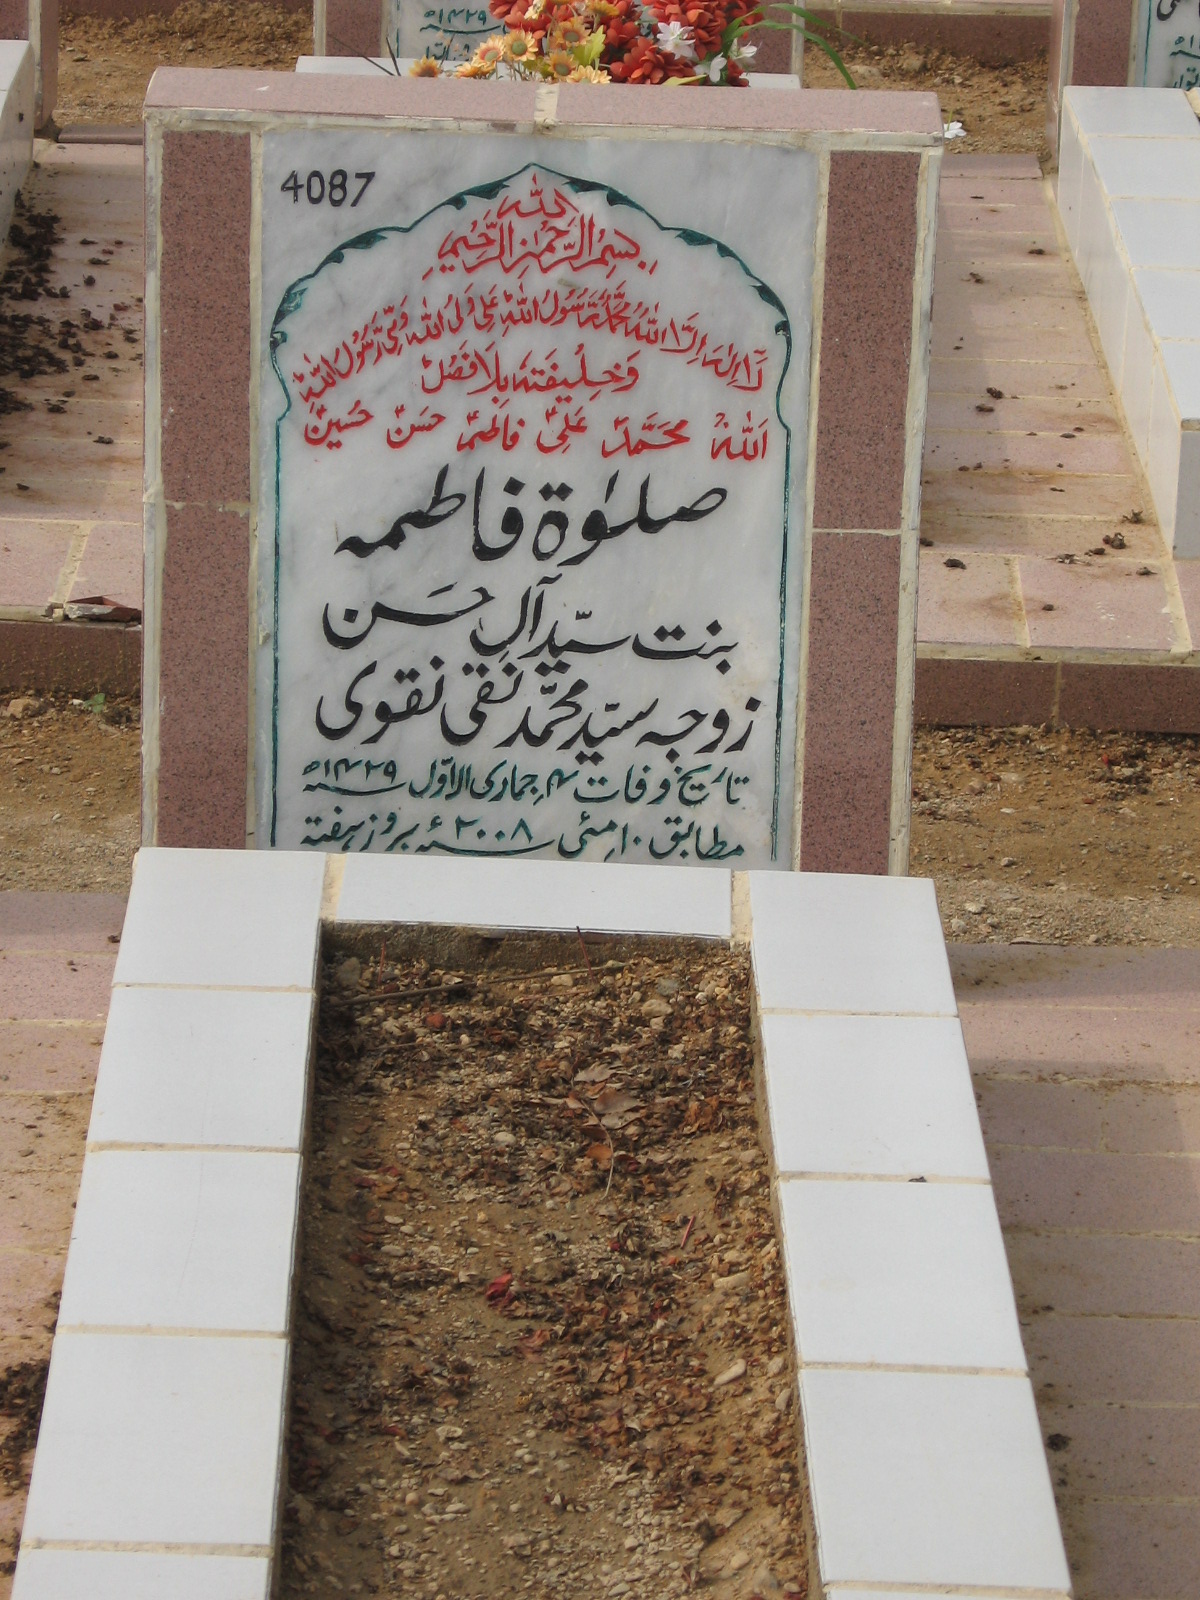 4087
الله
بسم الرحمن الرحیم
لا اله الا الله محمد رسول الله علی ولی الله وصی رسول الله
وخلیفته بلا فصل
الله محمد علی فاطمہ حسن حسین
صلوٰۃ فاطمہ
بنت سیّد آلِ حسن
زوجہ سیّد محمّد نقی نقوی
تاریخ وفات ۴ جماری الاوّل ۱۴۲۹ھ
مطابق ۱۰ مئی ۲۰۰۸ء بروز ہفتہ
۱۴۲۹ھ